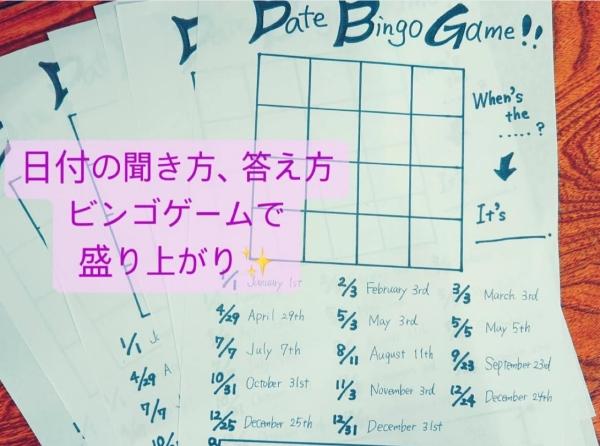 Date Bingo Game!!
When's
the
.....?
It's
日付の聞き方、答え方
ビンゴゲームで
盛り上がり✨
1/1 January 1st 2/3 February 3rd 3/3 March 3rd
4/29 April 29th 5/3 May 3rd 5/5 May 5th
7/7 July 7th 8/11 August 11th 9/23 September 23rd
10/31 October 31st 11/3 November 3rd 12/24 December 24th
12/25 December 25th 12/31 December 31st
1/1
4/29 A
7/7
10/